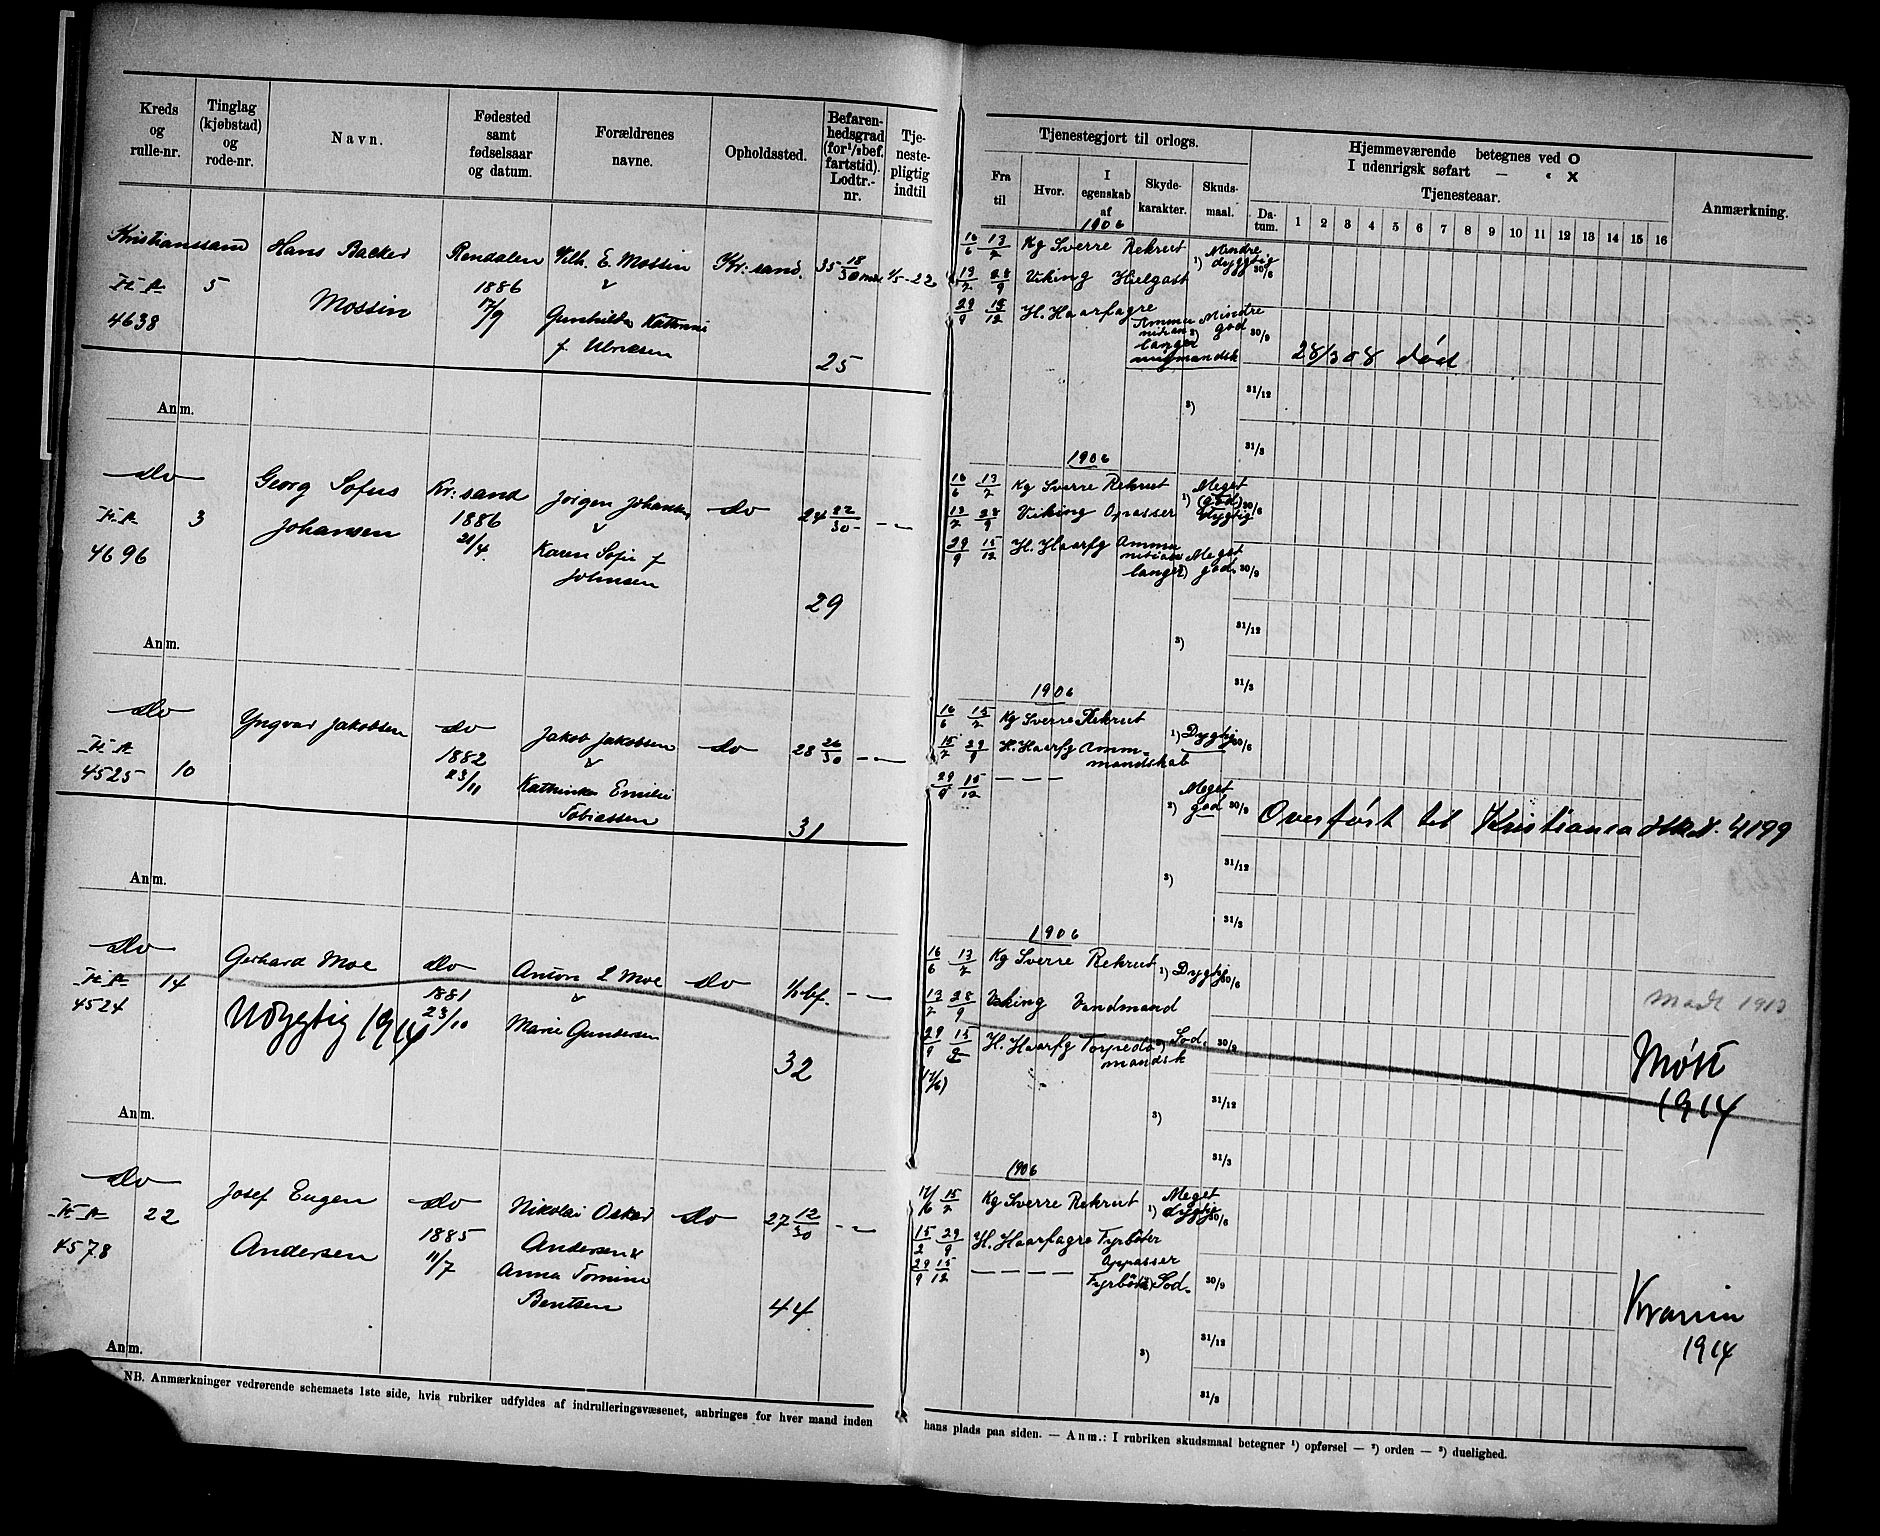 Kreds og rulle-nr.
Tinglag (kjøbstad) og rode-nr.
Navn.
Fødested samt fødselsaar og datum.
Forældrenes navne.
Opholdssted.
Befaren-hedsgrad (for ½ bef. fartstid). Lodtr.-nr.
Tje-neste-pligtig indtil
Tjenestegjort til orlogs.
Fra til
Hvor.
I egenskab af
Skyde-karakter.
Skuds-maal.
Hjemmeværende betegnes ved O
I udenrigsk søfart — " X
Tjenesteaar.
Da-tum. 1 2 3 4 5 6 7 8 9 10 11 12 13 14 15 16
Anmærkning.
Kristianssand
5
4638
Hans Backer
Mossin
Rendalen
1886
17/9
Vilh. E. Mossin
Gunhilda
f
Kr:sand.
35 18/30
25
1906
16/6 13/7 Kg Sverre Rekrut 1) Mindre dygtig 30/6
13/7 28/9 Viking
29/9 15/12 H. Haarfagre
Mindre god 30/9
28/3 08 død
31/12
3)
31/3
Anm.
do
3
4696
Georg Sofus
Johansen
Kr:sand
1886
21/4
Jørgen Johansen
Karen Sofie f
Johnsen
do
24 22/30
29
1906
16/6 13/7 Kg Sverre Rekrut 1) Meget (god) dygtig 30/6
13/7 28/9 Viking Opasser
29/9 15/12 H. Haarfg
Meget god 30/9
31/12
3)
31/3
Anm.
do
10
4525
Yngvar Jakobsen
do
1882
23/11
Jakob Jakobsen
Kathinka Emilie
Tobiassen
do
28 26/30
31
1906
16/6 15/7 Kg Sverre Rekrut 1) Dygtig 30/6
15/7 29/9 H. Haarfg Amm-
mandskab
29/9 15/12 — — —
2) Meget god 30/9
Overført til Kristiania 4199
31/12
3)
31/3
Anm.
do
14
4524
Gerhard Moe
Udygtig 1914
do
1881
23/10
Anton L Moe
Marie Gundersen
do
½ bf.
32
1906
16/6 13/7 Kg Sverre Rekrut 1) Dygtig 30/6
13/7 28/9 Viking Vandmand
29/9 H. Haarfg Torpedo
mandsk
30/9
Mødt 1913
Møtt
1914
31/12
3)
31/3
Anm.
do
22
4578
Josef Eugen
Andersen
do
1885
11/7
Nikolai Oskar
Andersen &
Anna Tomine
Bentsen
do
27 12/30
44
1906
17/6 15/7 Kg Sverre Rekrut 1) Meget dygtig 30/6
29/9 H. Haarfagre Fyrbøter
Opasser
29/9 15/12 — — — —
30/9
1914
31/12
3)
31/3
Anm.
NB. Anmærkninger vedrørende schemaets 1ste side, hvis rubriker udfyldes af indrulleringsvæsenet, anbringes for hver mand inden
hans plads paa siden. — Anm.: I rubriken skudsmaal betegner ¹) opførsel — ²) orden — ³) duelighed.